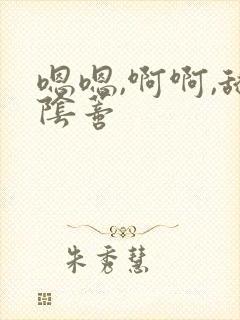 嗯嗯,啊啊,
陰蒂
朱秀慧